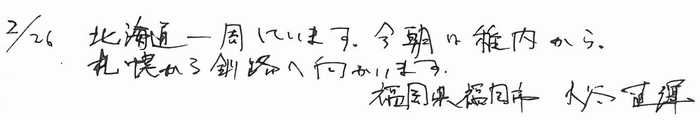 2/26 北海道一周しています。今朝は稚内から。
札幌から釧路へ向かいます。
福岡県福岡市 大谷 直輝